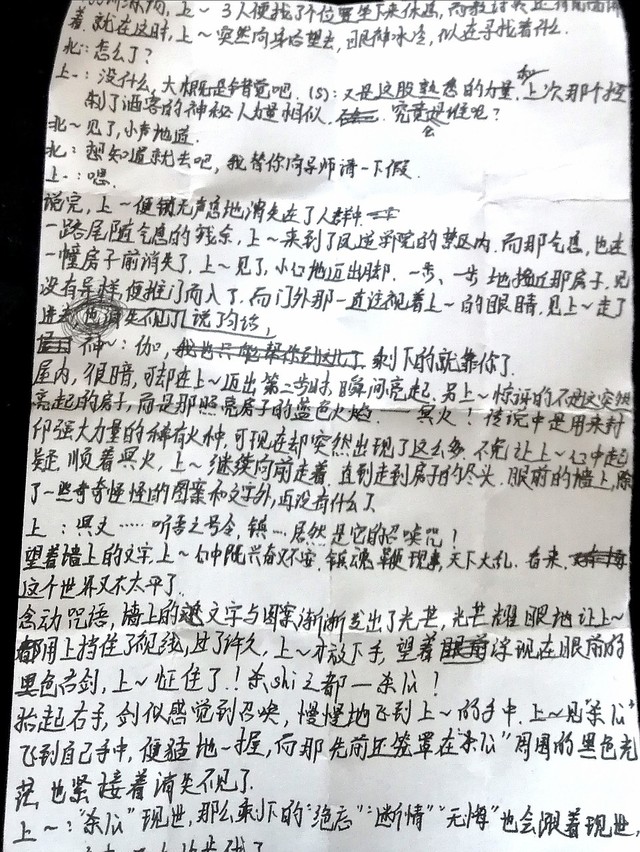 上~3人便找了个位置坐下来休息,而教
着,就在这时,上~突然向身后望去,眼神冰冷,似在寻找着什么.
北:怎么了?
上~:没什么,大概是错觉吧.(S):又是这股熟悉的力量,和上次那个控
制了酒客的神秘人力量相似. 究竟会是谁呢?
北~见了,小声地道.
北:想知道就去吧,我帮你向导师请一下假.
上~:嗯.
说完,上~便悄无声息地消失在了人群中.
一路尾随气息的残余,上~来到了风道学院的禁区内.而那气息,也在
一幢房子前消失了.上~见了,小心地迈出脚.一步、一步地接近那房子,见
没有异样便推门而入了.而门外那一直注视着上~的眼睛,见上~走了
进去,也消失不见了,说了句话,
神~:伽,我也只能帮你到这儿了.剩下的就靠你了.
屋内,很暗,可却在上~迈出第二步时,瞬间亮起.另上~惊讶的不是这突然
亮起的房子,而是那照亮房子的蓝色火焰.——冥火!传说中是用来封
印强大力量的稀有火种,可现在却突然出现了这么多,不免让上~心中起
疑.顺着冥火,上~继续向前走着.直到走到房子的尽头.眼前的墙上,除
了一些奇奇怪怪的图案和文字外,再没有什么了.
上:冥文……听吾之号令,镇…居然是它的召唤咒!
望着墙上的文字,上~心中既兴奋又不安.镇魂鞭现,天下大乱.看来,
这个世界又不太平了.
念动咒语,墙上的文字与图案渐渐发出了光芒,光芒耀眼地让上~
都用上挡住了视线,过了许久,上~才放下手,望着浮现在眼前的
黑色古剑,上~怔住了!杀shi之都—杀伈!
抬起右手,剑似感觉到召唤,慢慢地飞到上~的手中.上~见"杀伈"
飞到自己手中,便猛地一握,而那先前还笼罩在"杀伈"周围的黑色光
茫,也紧接着消失不见了.
上~:"杀伈"现世,那么剩下的"绝忘""断情""无悔"也会跟着现世,